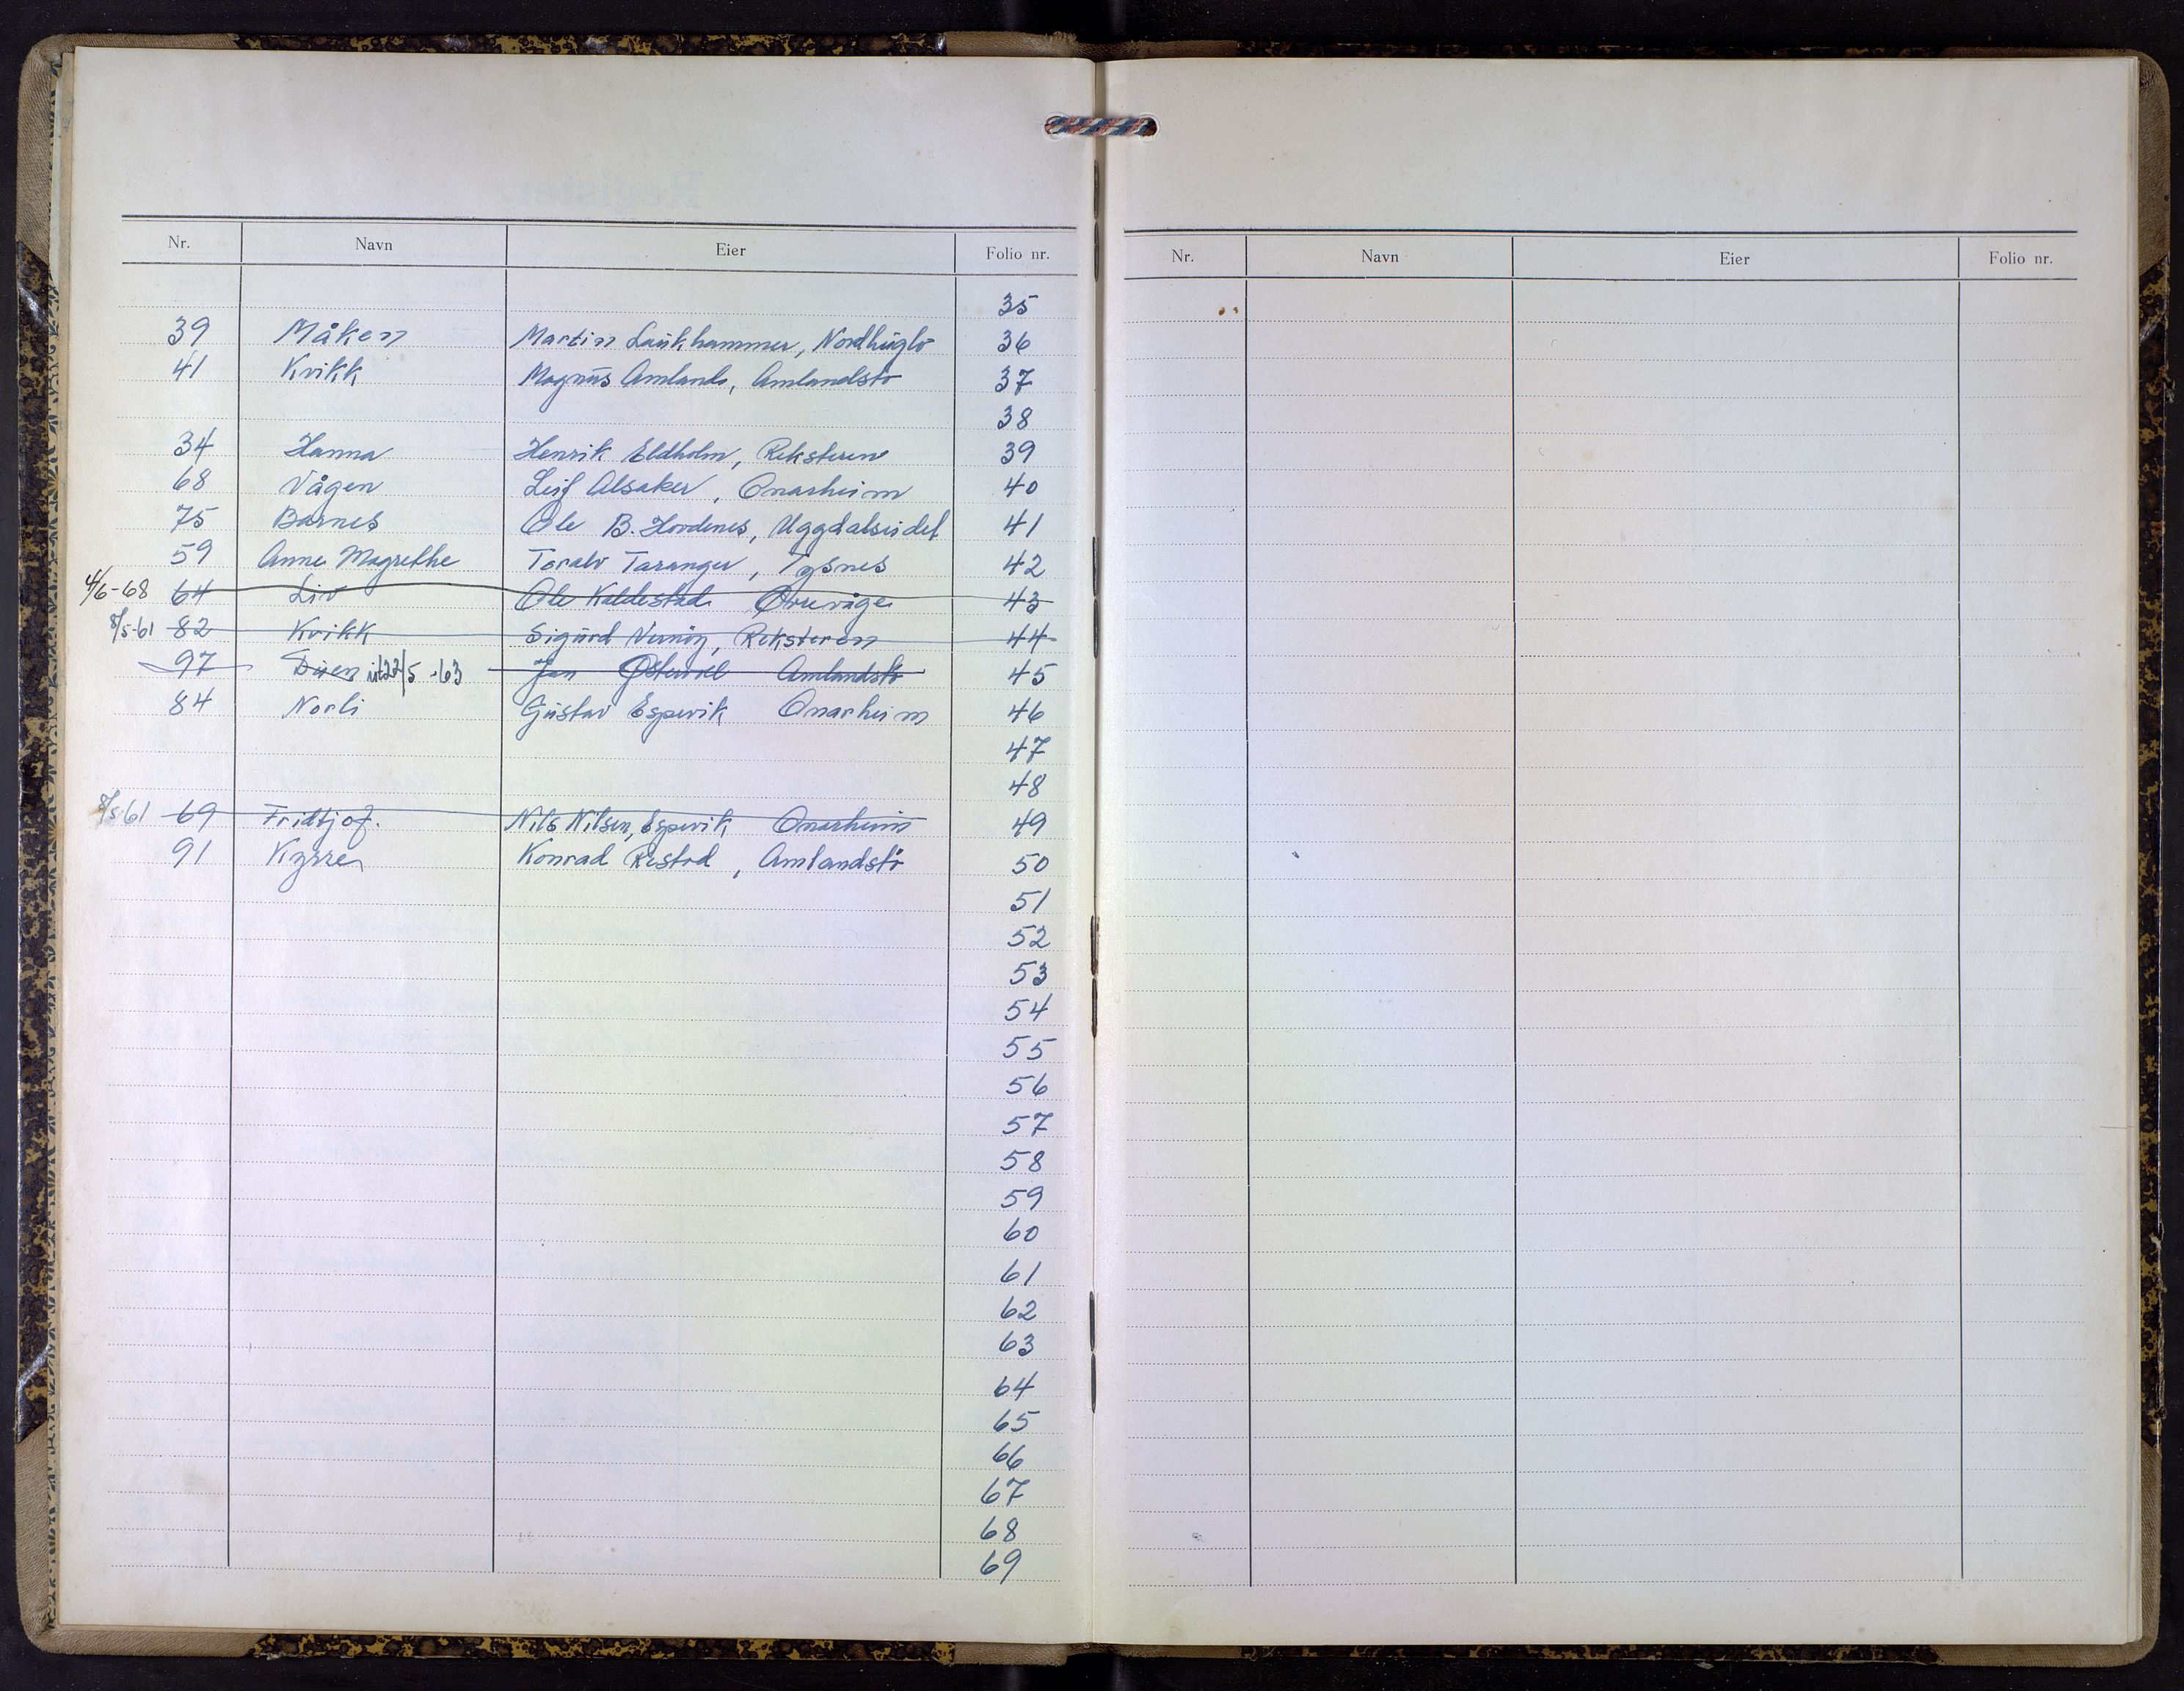 Nr. Navn Eier Folio nr.
35
39 Måken Martin Laukhammer, Nordhuglo 36
41 Kvikk Magnus Amland, Amlandstø 37
38
34 Hanna Henrik Eldholm, Reksteren 39
68 Vågen Leif Alsaker, Onarheim 40
75 Barnes Ole B. Hovdenes, Uggdalseidet 41
59 Anne Magrethe Toralv Taranger, Tysnes 42
4/6-68 64 Liv Ole Kaldestad Ørrevåge 43
8/5-61 82 Kvikk Sigurd Reksteren 44
97 ut 22/5-63 Jan Amlandstø 45
84 Norli Gustav Espevik Onarheim 46
47
48
8/5-61 69 Fridtjof. Nils Nilsen, Espevik Onarheim 49
91 Kyrre Konrad Restad, Amlandstö 50
51
52
53
54
55
56
57
58
59
60
61
62
63
64
65
66
67
68
69
Nr. Navn Eier Folio nr.